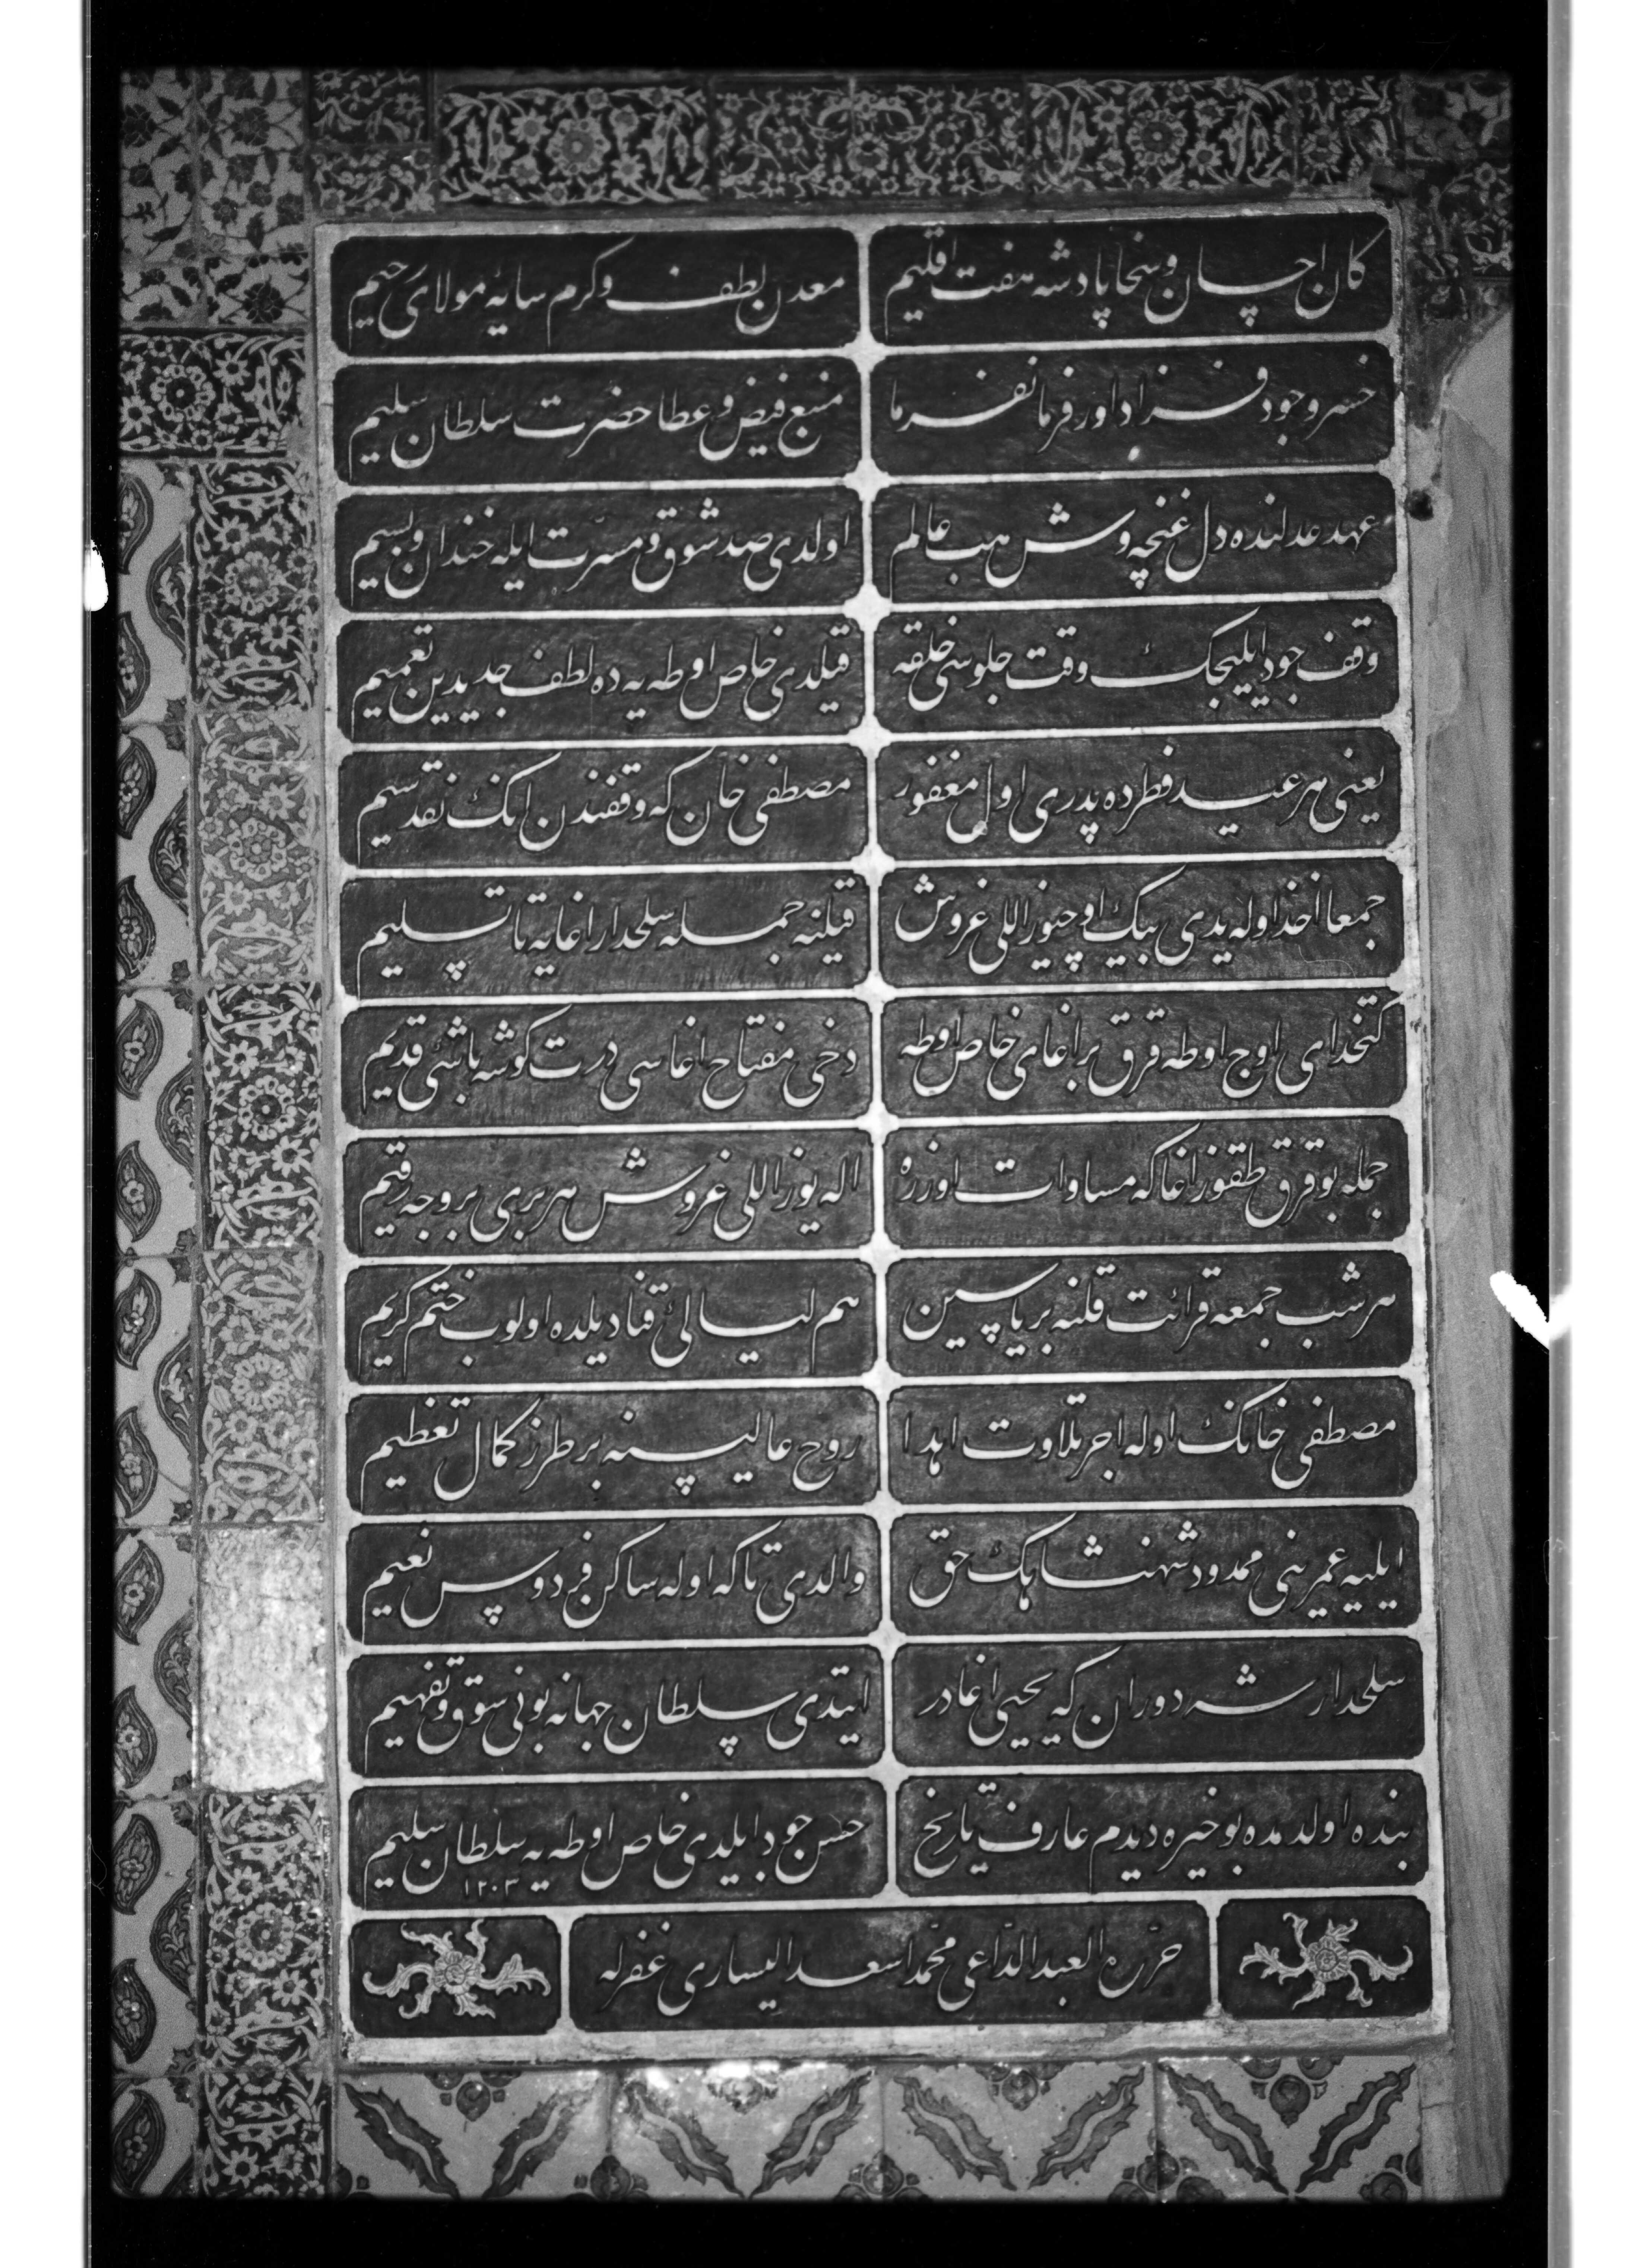 كان احسان و سخا پادشه هفت اقليم
معدن لطف و كرم سايهٔ مولاى رحيم
خسرو جود فزا داور فرمانفرما
منبع فيض و عطا حضرت سلطان سليم
عهد عدلنده دل غنچه وش هب عالم
اولدى صد شوق و مسرّت ايله خندان و بسيم
وقف جود ايليجك وقت جلوسى خلقه
قيلدى خاص اوطه يه ده لطف جديدين تعميم
يعنى هر عيد فطرده پدرى اول مغفور
مصطفى خان كه وقفندن انك نقد سيم
جمعا اخذ اوله يدى بيك اوچيوز اللى غروش
قيلنه جمله سلحدار اغايه تا تسليم
كتخداى اوج اوطه قرق بر اغاى خاص اوطه
دخى مفتاح اغاسى درت كوشه باشئ قديم
جمله بو قرق طقوز اغا كه مساوات اوزره
اله يوز اللى غروش هر برى بر وجه رقيم
هر شب جمعه قرائت قلنه بر ياسين
هم ليالئ قناديلده اولوب ختم كريم
مصطفى خانك اوله اجر تلاوت اهدا
روح عاليسنه بر طرز كمال تعظيم
ايليه عمرينى ممدود شهنشاهك حق
والدى تا كه اوله ساكن فردوس نعيم
سلحدار شه دوران كه يحيى اغادر
ايتدى سلطان جهانه بونى سوق و تفهيم
بنده اولدمده بو خيره ديدم عارف تاريخ
حسن جود ايلدى خاص اوطه يه سلطان سليم
١٢٠٣
حرّره العبد الدّاعى محمّد اسعد اليسارى غفر له